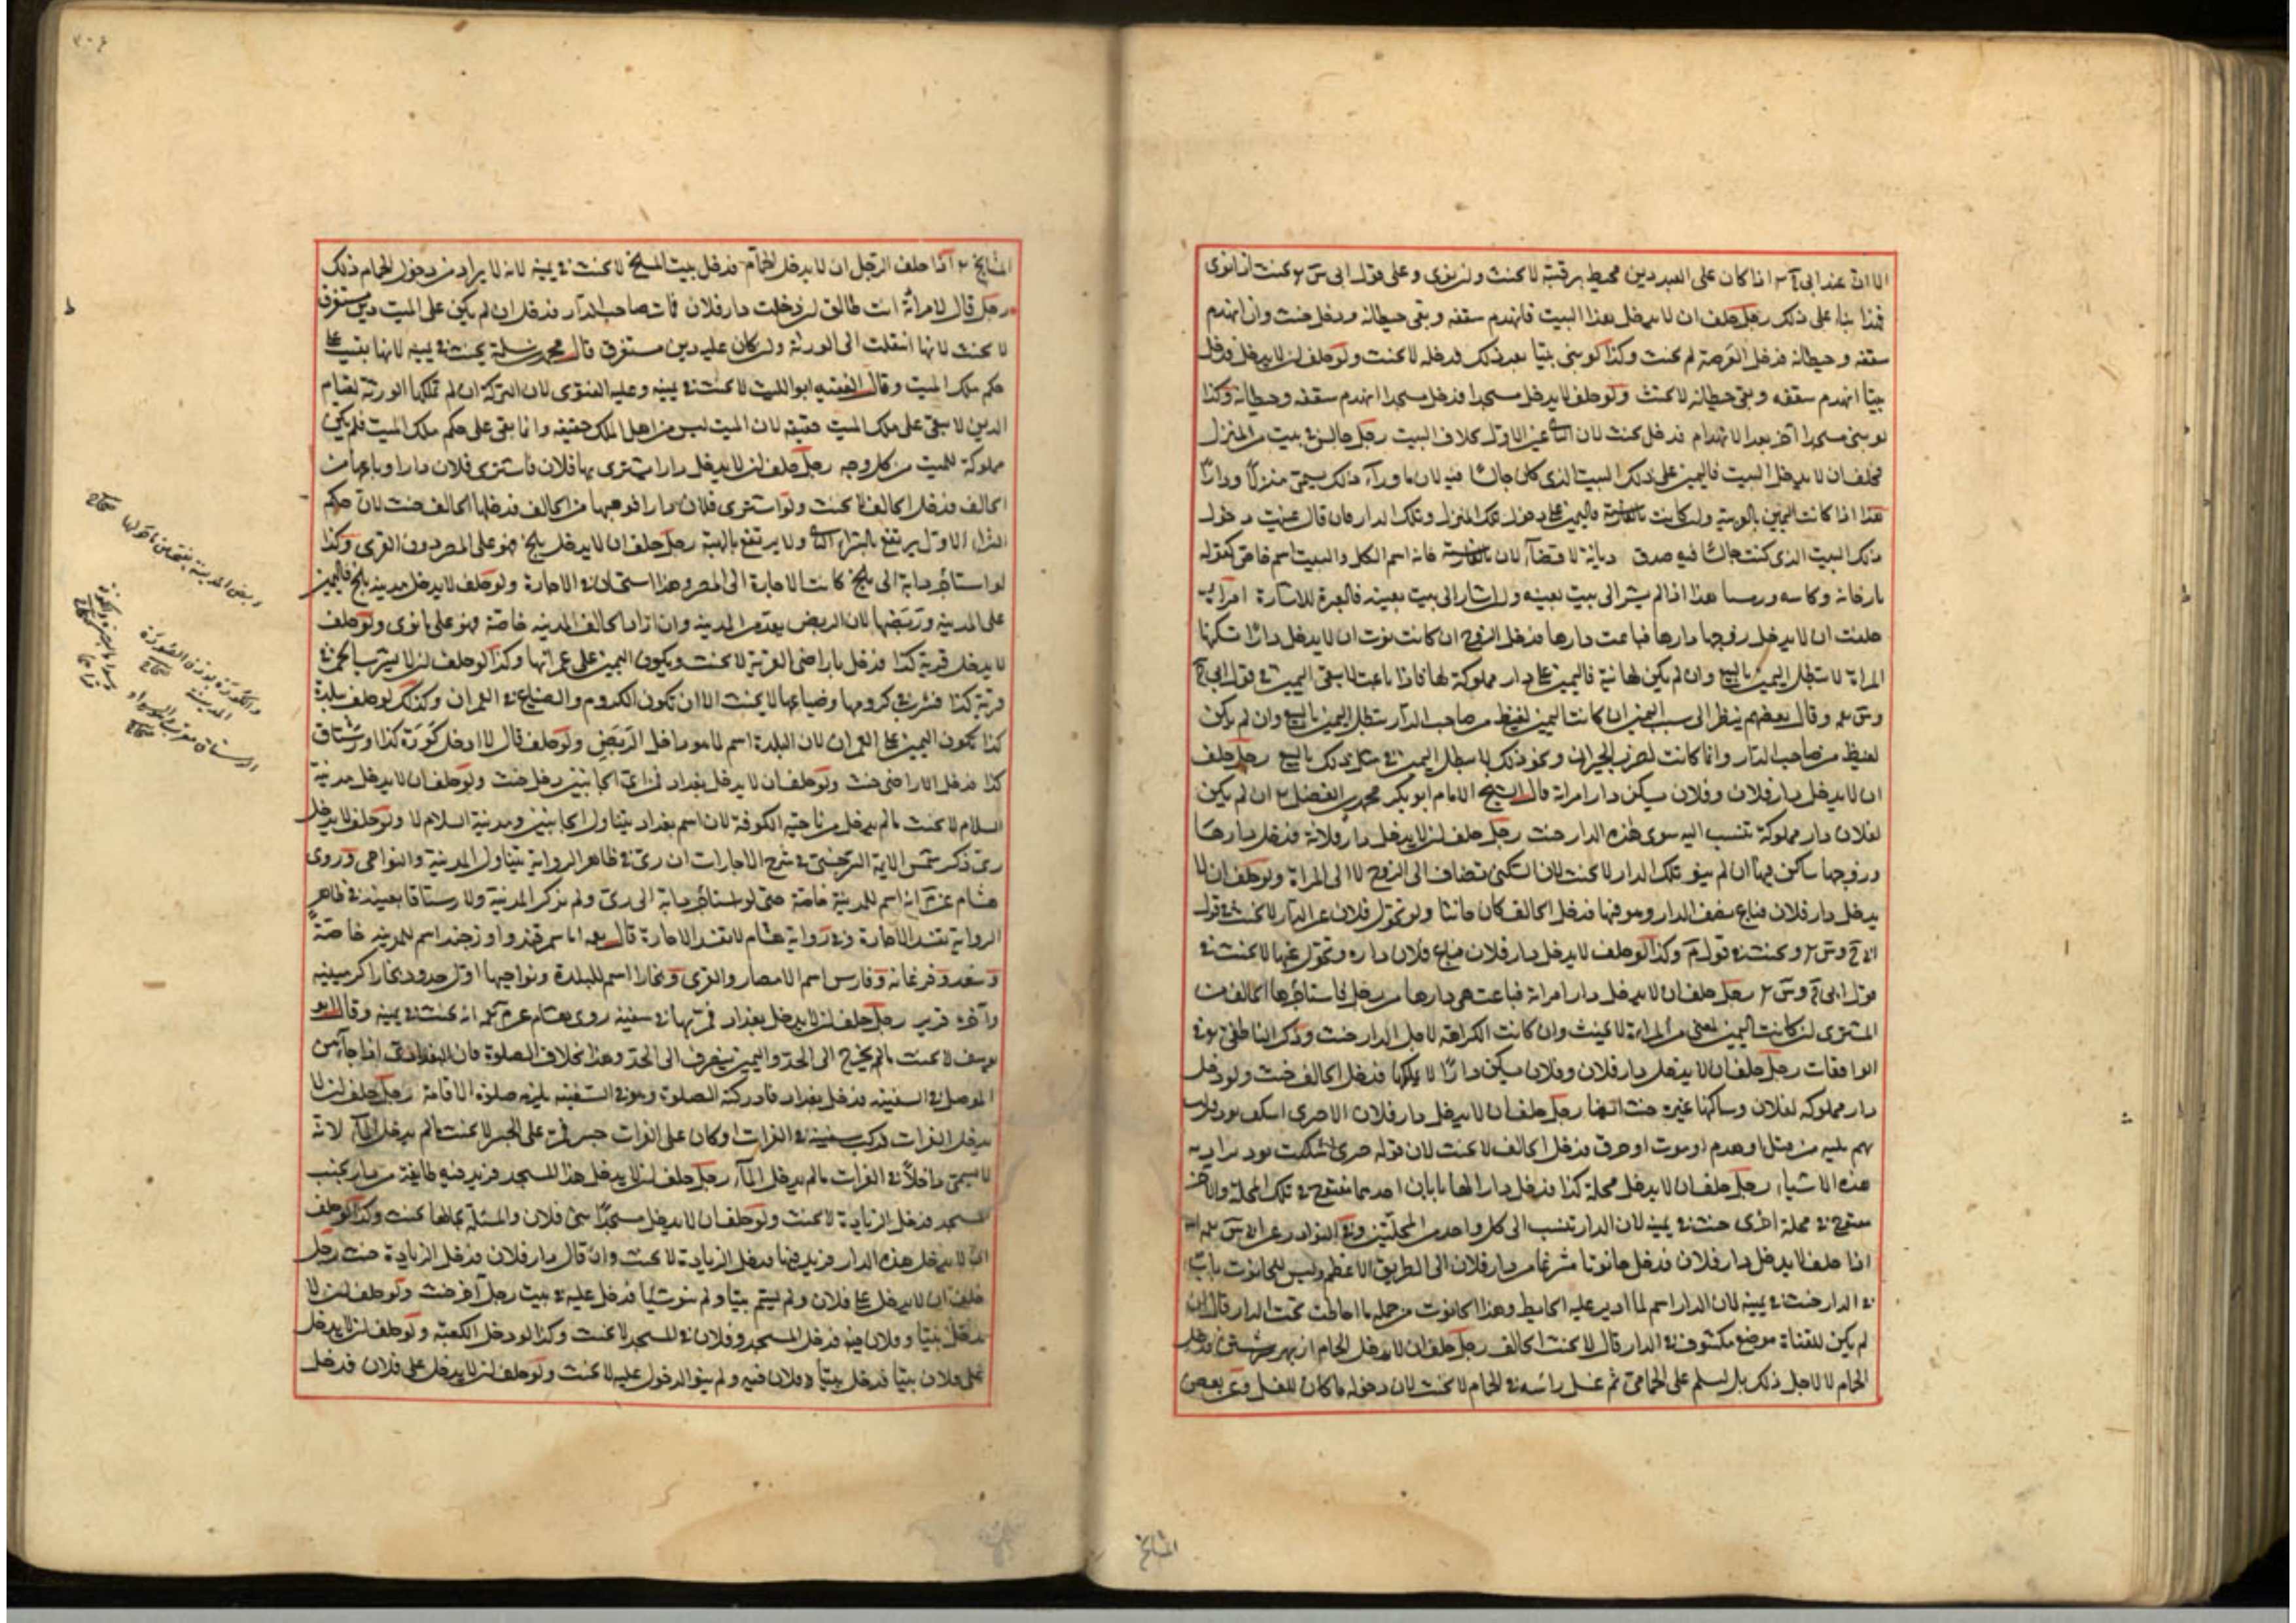 الا ان عند ابي ح اذا كان على العبد دين محيط برقبته لا يحنث وان نوى وعلى قول ابي س يحنث اذا نوى
فهذا بناء على ذلك رجل حلف ان لا يدخل هذا البيت فانهدم سقفه وبقي حيطانه ودخل حنث وان انهدم
سقفه وحيطانه فدخل العرصة لم يحنث وكذا لو بنى بيتا بعد ذلك فدخله لا يحنث ولو حلف ان لا يدخل فدخل
بيتا انهدم سقفه وبقي حيطانه لا يحنث ولو حلف لا يدخل مسجدا فدخل مسجدا انهدم سقفه وحيطانه وكذا
لو بنى مسجدا آخر بعد الانهدام فدخل يحنث لان الثاني عين الاول بخلاف البيت رجل جالس في بيت من المنزل
فحلف ان لا يدخل البيت فاليمين على ذلك البيت الذي كان جالسا فيه لان ما وراء ذلك يسمى منزلا ودارا
هذا اذا كانت اليمين بالعربية وان كانت بالفارسية فاليمين على دخول تلك المنزل وتلك الدار فان قال عنيت دخول
ذلك البيت الذي كنت جالسا فيه صدق ديانة لا قضاء لان بالفارسية خانه اسم الكل والبيت اسم خاص كقوله
هذا اذا لم يشر الى بيت بعينه وان اشار الى بيت بعينه فالعبرة للاشارة امراة
حلفت ان لا يدخل زوجها دارها فباعت دارها فدخل الزوج ان كانت نوت ان لا يدخل دارا تسكنها
المراة لا تبطل اليمين بالبيع وان لم يكن لها نية فاليمين على دار مملوكة لها فاذا باعت لا يبقى اليمين في قول ابي ح
وس وقال بعضهم ينظر الى سبب اليمين ان كانت اليمين لغيظ من صاحب الدار تبطل اليمين بالبيع وان لم يكن
لغيظ من صاحب الدار وانما كانت لضرب الجيران ونحو ذلك لا تبطل اليمين في مثل ذلك بالبيع رجل حلف
ان لا يدخل دار فلان وفلان يسكن دار امراته قال الشيخ الامام ابو بكر محمد بن الفضل ان لم يكن
لفلان دار مملوكة تنسب اليه سوى هذه الدار حنث رجل حلف ان لا يدخل دار فلانة فدخل دارها
وزوجها ساكن فيها ان لم ينو تلك الدار لا يحنث لان السكنى تضاف الى الزوج لا الى المراة ولو حلف ان لا
يدخل دار فلان فباع نصف الدار وهو فيها فدخل الحالف كان حانثا ولو تحول فلان عن الدار لا يحنث في قول
ابي ح وس ويحنث في قول م وكذا لو حلف لا يدخل دار فلان فباع فلان داره وتحول عنها لا يحنث في
قول ابي ح وس رجل حلف ان لا يدخل دار امراته فباعت هي دارها من رجل فاستاجرها الحالف من
المشتري ان كانت اليمين لمعنى من المراة لا يحنث وان كانت الكراهة لاجل الدار حنث وذكر الناطفي في
الواقعات رجل حلف ان لا يدخل دار فلان وفلان يسكن دارا لا يملكها فدخل الحالف حنث ولو دخل
دار مملوكة لفلان وساكنها غيره حنث ايضا رجل حلف ان لا يدخل دار فلان
من قتل او هدم او موت او حرق فدخل الحالف لا يحنث لان قوله
هذه الاشياء رجل حلف ان لا يدخل محلة كذا فدخل دارا لها بابان احدهما مفتوح في تلك المحلة والآخر
مفتوح في محلة اخرى حنث في يمينه لان الدار تنسب الى كل واحد من المحلتين وفي النوادر عن ابي س
اذا حلف لا يدخل دار فلان فدخل حانوتا مشرعا من دار فلان الى الطريق الاعظم وليس للحانوت باب
في الدار حنث في يمينه لان الدار اسم لما ادير عليه الحايط وهذا الحانوت من جملة ما احاطت تحت الدار قال ان
لم يكن للقناة موضع مكشوف في الدار قال لا يحنث الحالف رجل حلف ان لا يدخل الحمام از بهر شستن فدخل
الحمام لا لاجل ذلك بل ليسلم على الحمامي ثم غسل راسه في الحمام لا يحنث لان دخوله ما كان للغسل وعن بعض
المشايخ
المشايخ اذا حلف الرجل ان لا يدخل الحمام فدخل بيت المسلخ لا يحنث في يمينه لانه لا يراد من دخول الحمام ذلك
رجل قال لامراته انت طالق ان دخلت دار فلان فمات صاحب الدار فدخل ان لم يكن على الميت دين مستغرق
لا يحنث لانها انتقلت الى الورثة وان كان عليه دين مستغرق قال محمد بن سلمة يحنث في يمينه لانها بقيت على
حكم ملك الميت وقال الفقيه ابو الليث لا يحنث في يمينه وعليه الفتوى لان التركة ان لم تملكها الورثة لقيام
الدين لا يبقى على ملك الميت حقيقة لان الميت ليس من اهل الملك حقيقة وانما يبقى على حكم ملك الميت فلم يكن
مملوكة للميت من كل وجه رجل حلف ان لا يدخل دارا يشتريها فلان فاشترى فلان دارا وباعها من
الحالف فدخل الحالف لا يحنث ولو اشترى فلان دارا فوهبها من الحالف فدخلها الحالف حنث لان حكم
الشراء الاول يرتفع بالشراء الثاني ولا يرتفع بالهبة رجل حلف ان لا يدخل بلخ فهو على المصر دون القرى وكذا
لو استاجر دابة الى بلخ كانت الاجارة الى المصر وهذا استحسان في الاجارة ولو حلف لا يدخل مدينة بلخ فاليمين
على المدينة وربضها لان الربض يعد من المدينة وان اراد الحالف المدينة خاصة فهو على ما نوى ولو حلف
لا يدخل قرية كذا فدخل باراضي القرية لا يحنث ويكون اليمين على عمرانها وكذا لو حلف ان لا يشرب الخمر في
قرية كذا فشرب في كرومها وضياعها لا يحنث الا ان تكون الكروم والضياع في العمران وكذلك لو حلف بلدة
كذا تكون اليمين على العمران لان البلدة اسم لما هو داخل الربض ولو حلف قال لا ادخل كورة كذا او رستاق
كذا فدخل الاراضي حنث ولو حلف ان لا يدخل بغداد فمن اي الجانبين دخل حنث ولو حلف ان لا يدخل مدينة
السلام لا يحنث ما لم يدخل من ناحية الكوفة لان اسم بغداد يتناول الجانبين ومدينة السلام لا ولو حلف لا يدخل
ري ذكر شمس الايمة السرخسي في شرح الاجارات ان ري في ظاهر الرواية يتناول المدينة والنواحي وروى
هشام عن م انه اسم للمدينة خاصة حتى لو استاجر دابة الى ري ولم يذكر المدينة ولا رستاقا بعينه في ظاهر
الرواية تفسد الاجارة وفي رواية هشام لا تفسد الاجارة قال اما سمرقند واوزجند اسم للمدينة خاصة
وسغد وفرغانة وفارس اسم الامصار والقرى وبخارا اسم للبلدة ونواحيها اول حدود بخارا كرمينيه
وآخره فربر رجل حلف ان لا يدخل بغداد فمر بها في سفينة روى هشام عن م انه يحنث في يمينه وقال ابو
يوسف لا يحنث ما لم يخرج الى الحد واليمين ينصرف الى الحد وهذا بخلاف الصلوة فان البغدادي اذا جاء من
الموصل في السفينة فدخل بغداد فادركته الصلوة وهو في السفينة يلزمه صلوة الاقامة رجل حلف ان لا
يدخل الفرات فركب سفينة في الفرات او كان على الفرات جسر فمر على الجسر لا يحنث ما لم يدخل الماء لانه
لا يسمى داخلا في الفرات ما لم يدخل الماء رجل حلف ان لا يدخل هذا المسجد فزيد فيه طايفة من دار بجنب
المسجد فدخل الزيادة لا يحنث ولو حلف ان لا يدخل مسجد بني فلان والمسئلة بحالها يحنث وكذا لو حلف
ان لا يدخل هذه الدار فزيد فيها فدخل الزيادة لا يحنث وان قال دار فلان فدخل الزيادة حنث رجل
حلف ان لا يدخل على فلان ولم يسم بيتا ولم ينو شيا فدخل عليه في بيت رجل آخر حنث ولو حلف ان لا
يدخل بيتا وفلان فيه فدخل المسجد وفلان في المسجد لا يحنث وكذا لو دخل الكعبة ولو حلف ان لا يدخل
على فلان بيتا فدخل بيتا وفلان فيه ولم ينو الدخول عليه لا يحنث ولو حلف ان لا يدخل على فلان فدخل
ربض المدينة بفتحتين ما حولها صحاح
والكورة بوزن الصورة
المدينة صحاح
الرستاق معرب السواد
صحاح